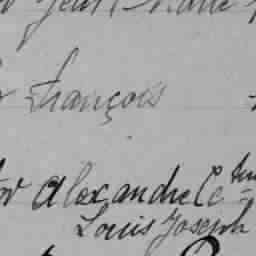 Jean Marie
François
Alexandre
Louis Joseph